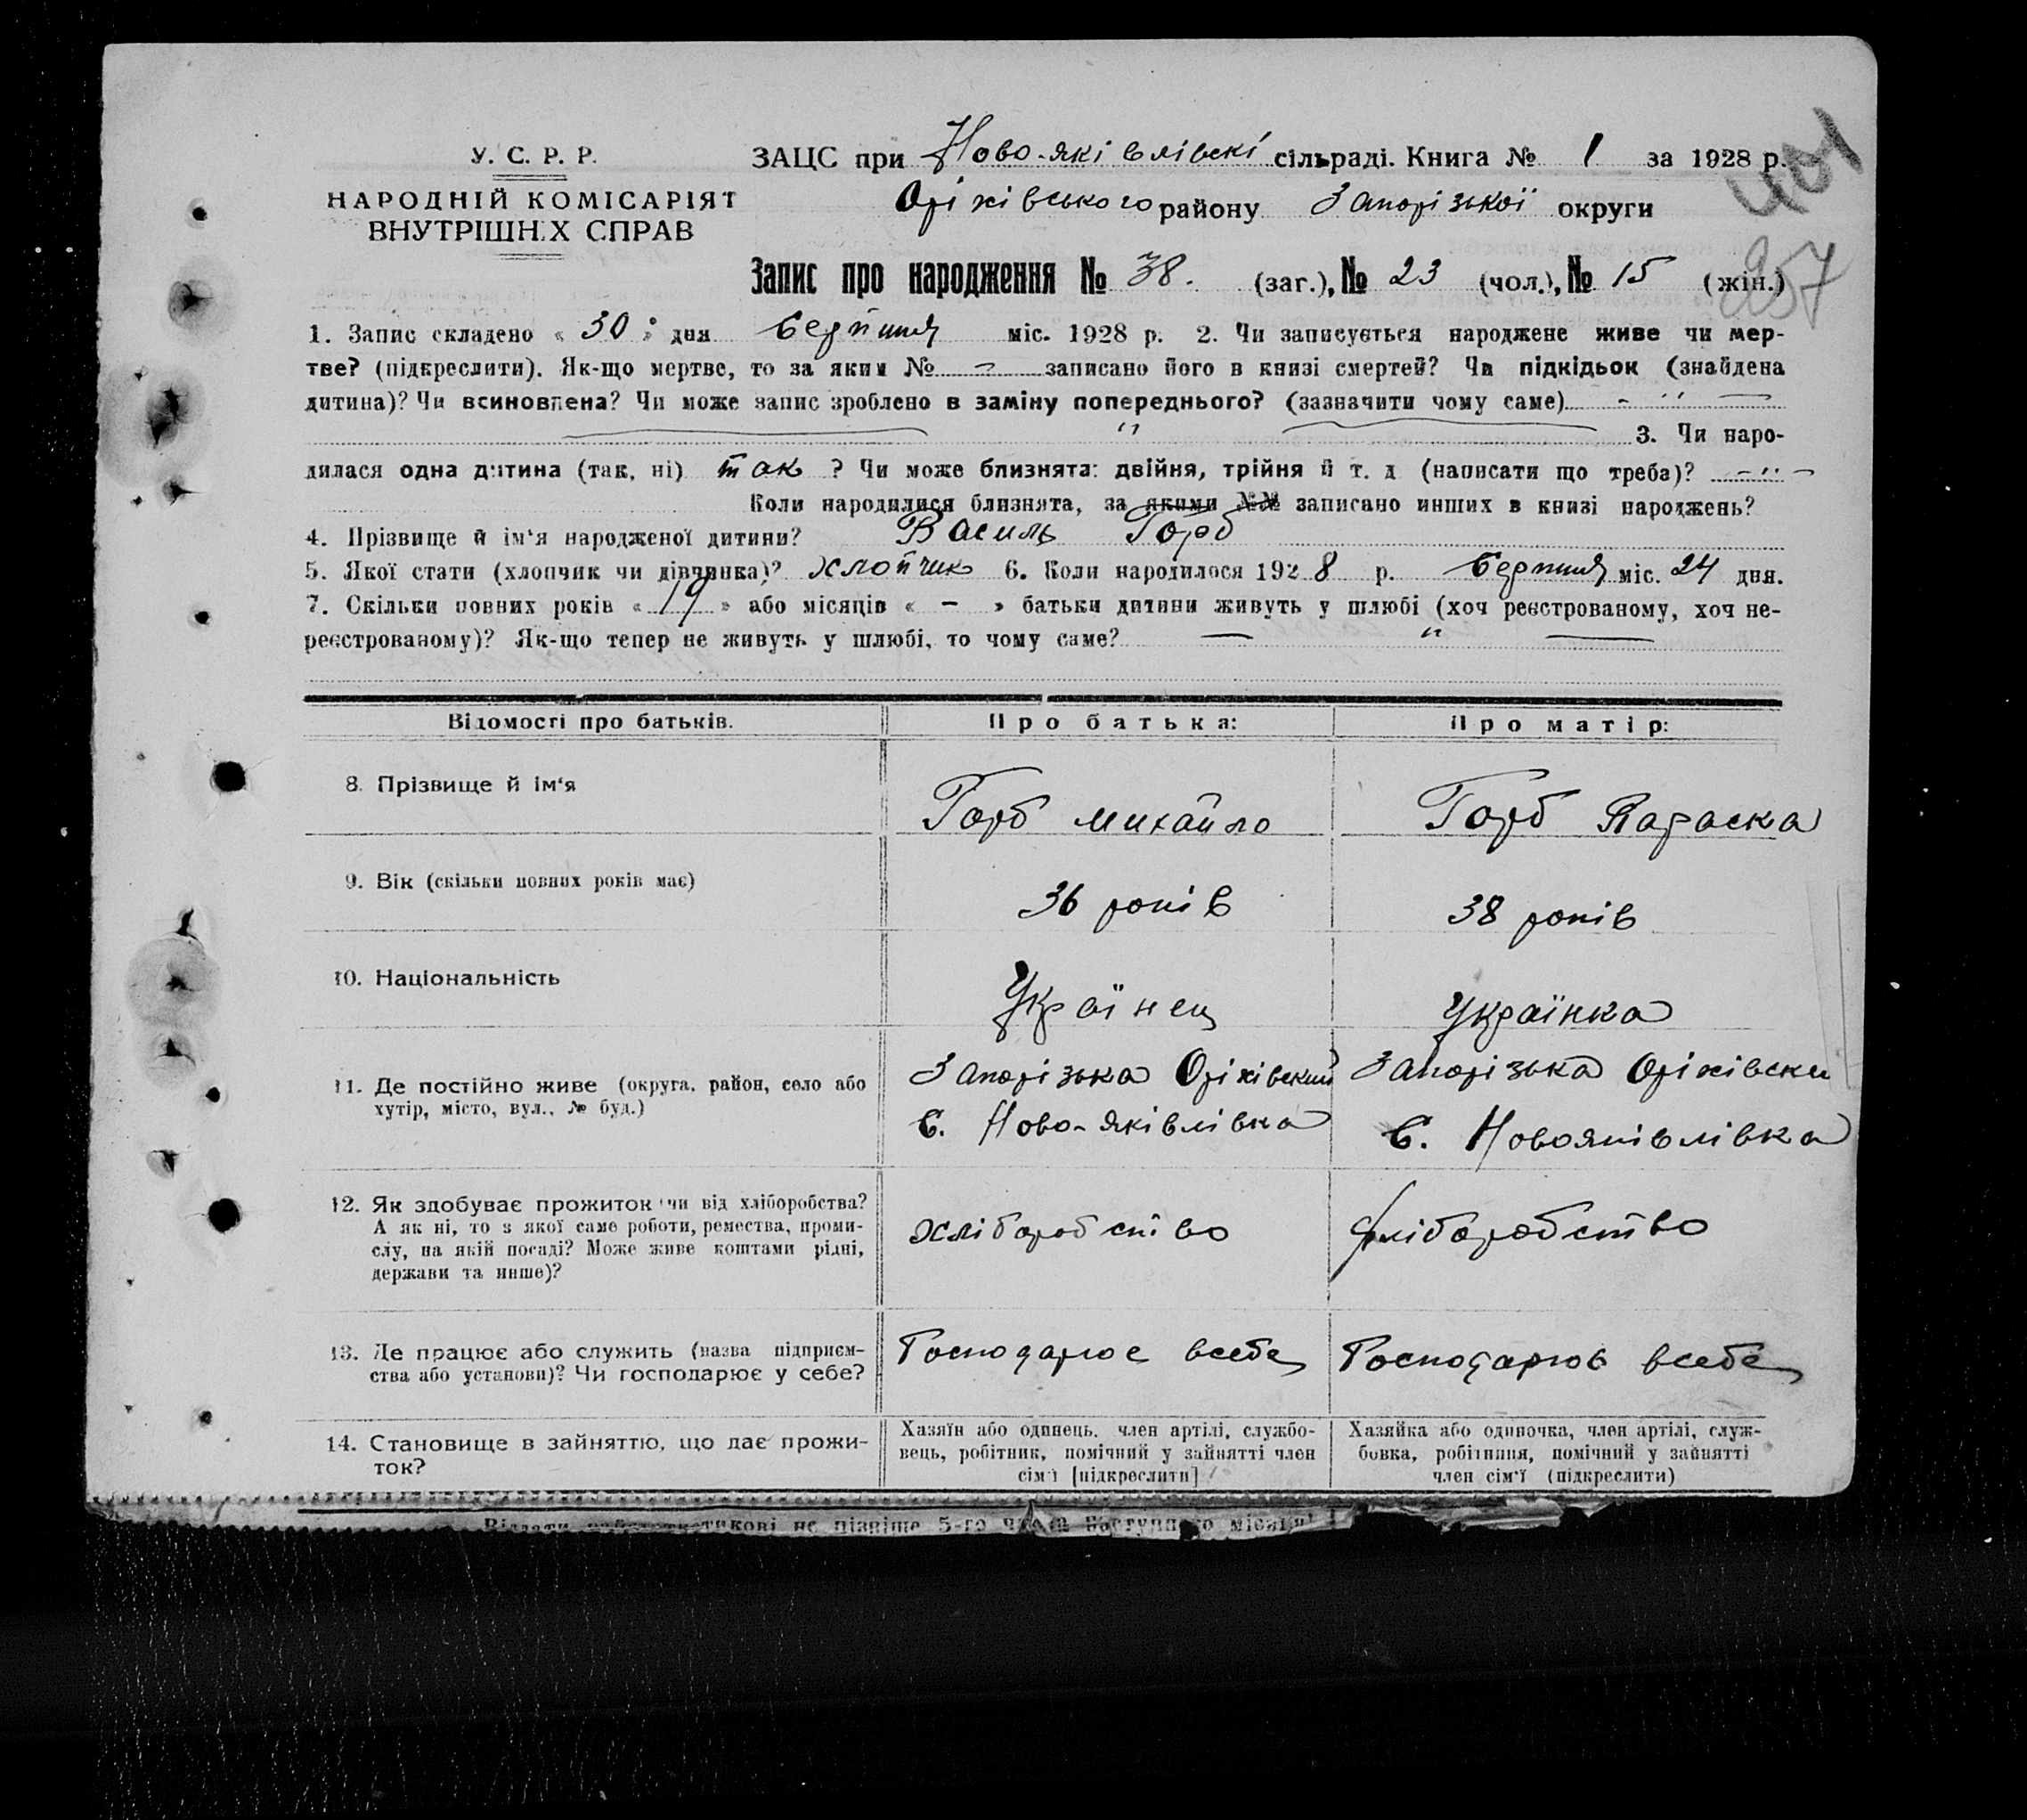 У. С. Р. Р.
НАРОДНІЙ КОМІСАРІЯТ
ВНУТРІШНІХ СПРАВ
ЗАЦС при Ново-яківлівскі сільраді. Книга № 1 за 1928 р.
401
Оріхівського району Запорізької округи
257
Запис про народження № 38. (заг.), № 23 (чол.), № 15 (жін.)
1. Запис складено « 30 » дня серпння міс. 1928 р. 2. Чи записується народжене живе чи мер-
тве? (підкреслити). Як-що мертве, то за яким № — записано його в книзі смертей? Чи підкідьок (знайдена
дитина)? Чи всиновлена? Чи може запис зроблено в заміну попереднього? (зазначити чому саме) - " —
— " — 3. Чи наро-
дилася одна дитина (так, ні) так ? Чи може близнята: двійня, трійня й т. д (написати що треба)? -"-
Коли народилися близнята, за якими №№ записано инших в книзі народжень?
4. Прізвище й ім'я народженої дитини? Василь Горб
5. Якої стати (хлопчик чи дівчинка)? хлопчик 6. Коли народилося 1928 р. серпння міс. 24 дня.
7. Скільки повних років « 19 » або місяців « - » батьки дитини живуть у шлюбі (хоч реєстрованому, хоч не-
реєстрованому)? Як-що тепер не живуть у шлюбі, то чому саме? — " —
Відомості про батьків. Про батька: Про матір:
8. Прізвище й ім'я Горб михайло Горб Параска
9. Вік (скільки повних років має) 36 років 38 років
10. Національність Українец Українка
11. Де постійно живе (округа, район, село або
хутір, місто, вул., № буд.)
Запорізька Оріхівский
с. Ново-яківлівка
Запорізька Оріхівски
с. Новояківлівка
12. Як здобуває прожиток чи від хліборобства?
А як ні, то з якої саме роботи, ремества, проми-
слу, на якій посаді? Може живе коштами рідні,
держави та инше)?
хліборобство
хліборобство
13. Де працює або служить (назва підприєм-
ства або установи)? Чи господарює у себе?
Господарює всебе
Господарює всебе
14. Становище в зайняттю, що дає прожи-
ток?
Хазяїн або одинець, член артілі, службо-
вець, робітник, помічний у зайнятті член
сім'ї [підкреслити]
Хазяйка або одиночка, член артілі, служ-
бовка, робітниця, помічний у зайнятті
член сім'ї (підкреслити)
не пізніше 5-го числа наступного місяця!